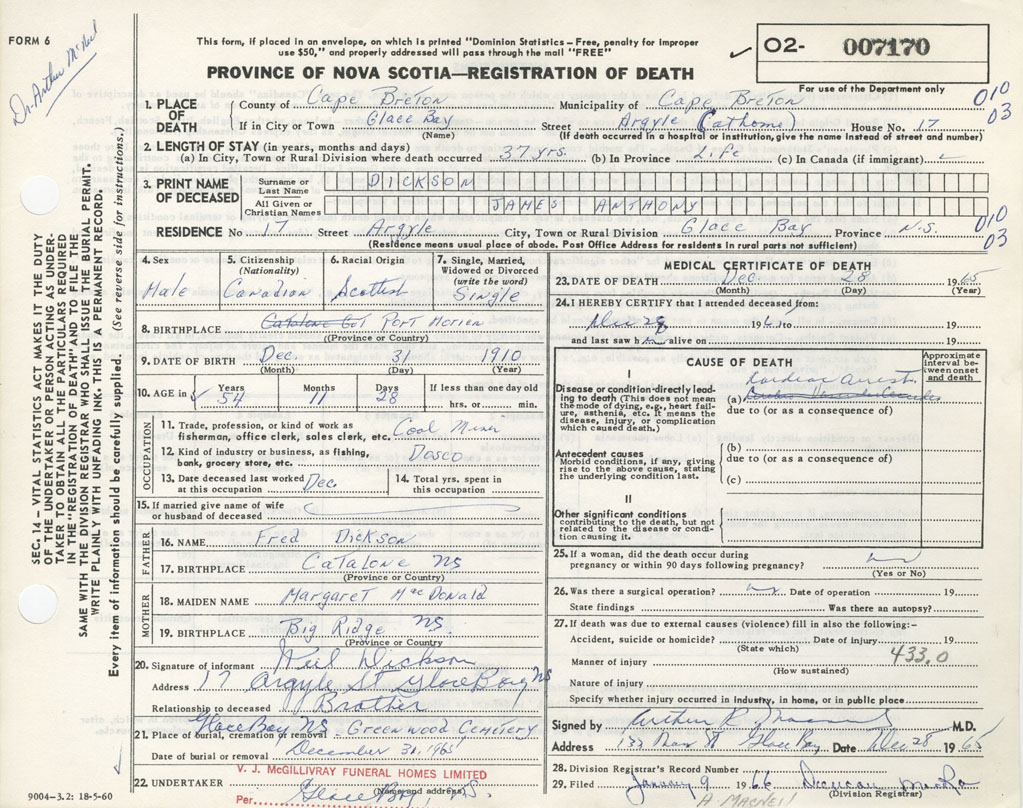 FORM 6
Dr. Arthur McNeil
This form, if placed in an envelope, on which is printed "Dominion Statistics – Free, penalty for improper
use $50," and properly addressed will pass through the mail "FREE"
PROVINCE OF NOVA SCOTIA—REGISTRATION OF DEATH
02- 007170
For use of the Department only
010
03
1. PLACE OF DEATH County of Cape Breton Municipality of Cape Breton
If in City or Town Glace Bay Street Argyle (at home) House No. 17
(Name) (If death occurred in a hospital or institution, give the name instead of street and number)
2. LENGTH OF STAY (in years, months and days)
(a) In City, Town or Rural Division where death occurred 37 yrs. (b) In Province Life (c) In Canada (if immigrant)
3. PRINT NAME OF DECEASED Surname or Last Name DICKSON
All Given or Christian Names JAMES ANTHONY
RESIDENCE No 17 Street Argyle City, Town or Rural Division Glace Bay Province N.S.
010
03
(Residence means usual place of abode. Post Office Address for residents in rural parts not sufficient)
4. Sex Male
5. Citizenship (Nationality) Canadian
6. Racial Origin Scottish
7. Single, Married, Widowed or Divorced (write the word) Single
8. BIRTHPLACE Port Morien
(Province or Country)
9. DATE OF BIRTH Dec. 31 1910
(Month) (Day) (Year)
10. AGE in Years 54 Months 11 Days 28 If less than one day old
hrs. or min.
OCCUPATION
11. Trade, profession, or kind of work as
fisherman, office clerk, sales clerk, etc. Coal Miner
12. Kind of industry or business, as fishing,
bank, grocery store, etc. Dosco
13. Date deceased last worked at this occupation Dec.
14. Total yrs. spent in this occupation
15. If married give name of wife
or husband of deceased
FATHER
16. NAME Fred Dickson
17. BIRTHPLACE Catalone NS
(Province or Country)
MOTHER
18. MAIDEN NAME Margaret MacDonald
19. BIRTHPLACE Big Ridge NS.
(Province or Country)
20. Signature of informant Neil Dickson
Address 17 Argyle St Glace Bay NS
Relationship to deceased Brother
21. Place of burial, cremation or removal Glace Bay NS - Greenwood Cemetery
Date of burial or removal December 31, 1965
22. UNDERTAKER V. J. McGILLIVRAY FUNERAL HOMES LIMITED
(Name and address)
Per Glace Bay, NS.
9004-3.2: 18-5-60
MEDICAL CERTIFICATE OF DEATH
23. DATE OF DEATH Dec. 28 1965
(Month) (Day) (Year)
24. I HEREBY CERTIFY that I attended deceased from:
196 to 19
and last saw h alive on 19
CAUSE OF DEATH
Approximate interval between onset and death
I
Disease or condition directly leading to death (This does not mean the mode of dying, e.g., heart failure, asthenia, etc. It means the disease, injury, or complication which caused death.)
Cardiac Arrest
(a)
due to (or as a consequence of)
Antecedent causes
Morbid conditions, if any, giving rise to the above cause, stating the underlying condition last.
(b)
due to (or as a consequence of)
(c)
II
Other significant conditions
contributing to the death, but not related to the disease or condition causing it.
25. If a woman, did the death occur during
pregnancy or within 90 days following pregnancy?
(Yes or No)
26. Was there a surgical operation? Date of operation 19
State findings Was there an autopsy?
27. If death was due to external causes (violence) fill in also the following:–
Accident, suicide or homicide? Date of injury 19
(State which)
433.0
Manner of injury
(How sustained)
Nature of injury
Specify whether injury occurred in industry, in home, or in public place
Signed by Arthur R. M.D.
Address Glace Bay Date Dec 28 1965
28. Division Registrar's Record Number
29. Filed January 9 1966 Duncan
(Division Registrar)
A MACNEIL
SEC. 14 – VITAL STATISTICS ACT MAKES IT THE DUTY
OF THE UNDERTAKER OR PERSON ACTING AS UNDER-
TAKER TO OBTAIN ALL THE PARTICULARS REQUIRED
IN THE "REGISTRATION OF DEATH" AND TO FILE THE
SAME WITH THE DIVISION REGISTRAR WHO SHALL ISSUE THE BURIAL PERMIT.
WRITE PLAINLY WITH UNFADING INK - THIS IS A PERMANENT RECORD.
Every item of information should be carefully supplied. (See reverse side for instructions.)